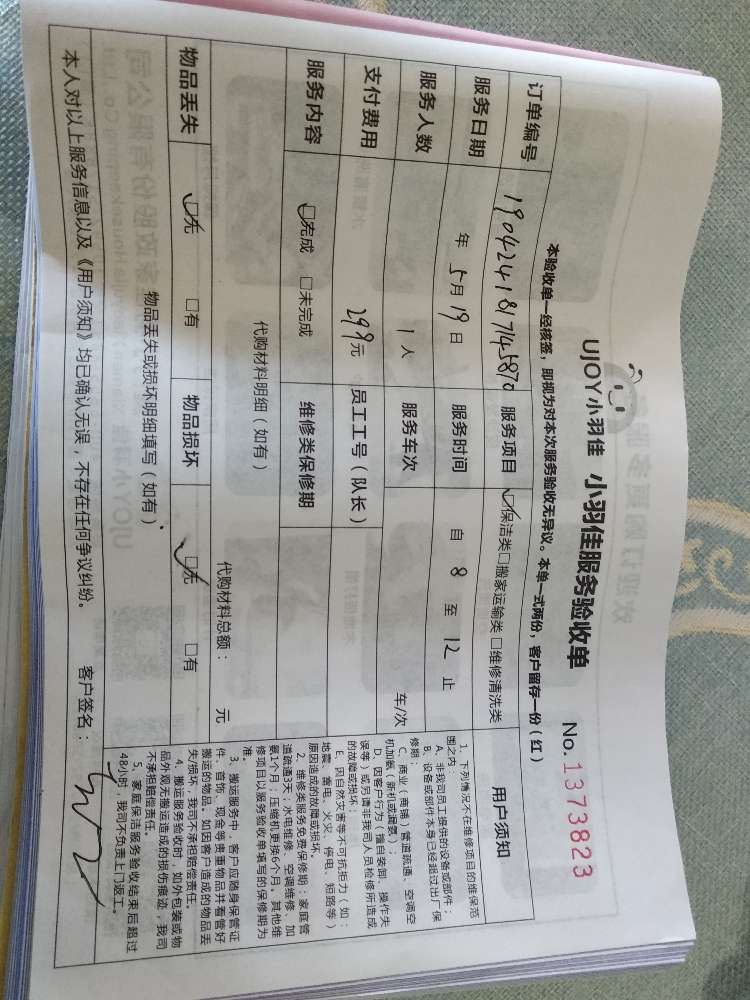 UJOY小羽佳 小羽佳服务验收单 No. 1373823
本验收单一经核签，即视为对本次服务验收无异议。本单一式两份，客户留存一份（红）
订单编号 190424181745870 服务项目 ☑保洁类 □搬家运输类 □维修清洗类
服务日期 年 5月19日 服务时间 自 8 至 12 止
服务人数 1人 服务车次 车/次
支付费用 299元 员工工号（队长）
服务内容 ☑完成 □未完成 维修类保修期
代购材料明细（如有） 代购材料总额： 元
物品丢失 ☑无 □有 物品损坏 ☑无 □有
物品丢失或损坏明细填写（如有）
本人对以上服务信息以及《用户须知》均已确认无误，不存在任何争议纠纷。 客户签名：
用户须知
1、下列情况不在维修项目的维保范
围之内：
A、非我司员工提供的设备或部件；
B、设备或部件本身已经超过出厂保
修期；
C、商业（商铺）管道疏通、空调空
机加氨（新机或漏氨）；
D、因客户行为（擅自装卸、操作失
误等）或另请非我司人员检修所造成
的故障或损坏；
E、因自然灾害等不可抗拒力（如：
地震、雷电、火灾、停电、短路等）
原因造成的故障或损坏。
2、维修类服务免费保修期：家庭管
道疏通3天；水电维修、空调维修、加
氨1个月；压缩机更换6个月。其他维
修项目以服务验收单填写的保修期为
准。
3、搬运服务中，客户应随身保管证
件、首饰、现金等贵重物品并看管好
搬运的物品。如因客户造成的物品丢
失/损坏，我司不承担赔偿责任。
4、搬运服务验收时，如外包装或物
品外观无搬运造成的损伤痕迹，我司
不承担赔偿责任。
5、家庭保洁服务验收结束后超过
48小时，我司不负责上门返工。